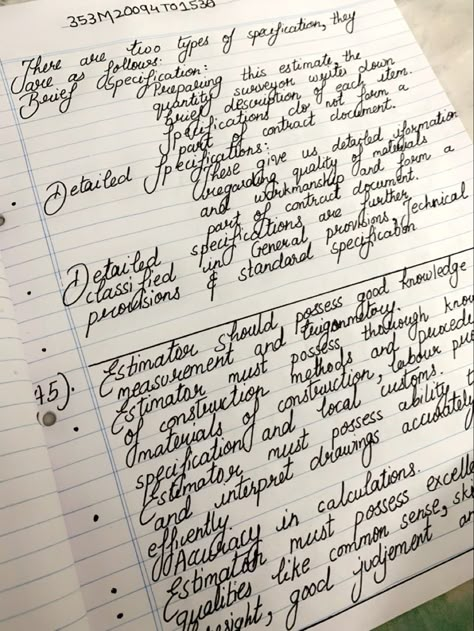 353M20094T01530
There are two types of specification, they
are as follows:
Brief specification: Preparing this estimate, the
quantity surveyor writes down
brief description of each item.
Specifications do not form a
part of contract document.
Detailed Specifications: These give us detailed information
regarding quality of materials
and workmanship and form a
part of contract document.
Detailed specifications are further
classified in General provisions, Technical
provisions & standard specification
15). Estimator should possess good knowledge
measurement and trigonmetry.
Estimator must possess thorough
of construction methods and
materials of construction, labour
specification and local customs.
Estimator must possess ability
and interpret drawings accurately
effiently.
Accuracy in calculations.
Estimator must possess
qualities like common sense,
good judjement